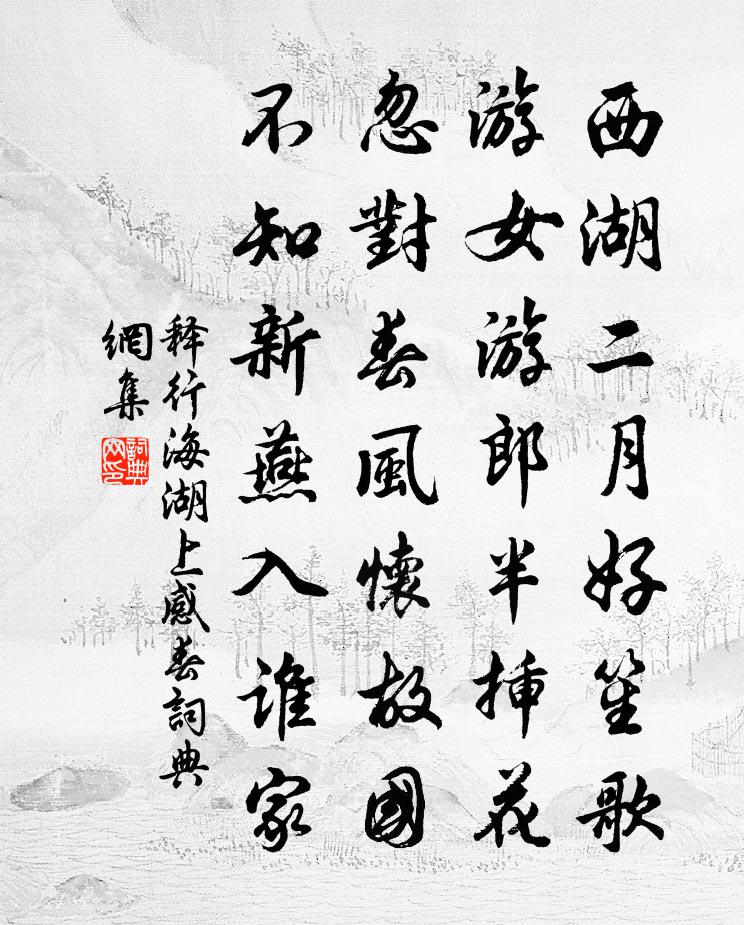 西湖二月好笙歌
游女游郎半挿花
忽對春風懷故國
不知新燕入誰家
释行海湖上感春詞典
網集
詞典
网印